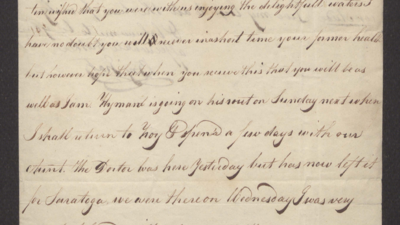 that you were with us enjoying the delightfull waters I
have no doubt you will recover in a short time your former health
but however hope that when you receive this that you will be as
well as I am. Hyman is going on his rout on Sunday next when
I shall return to Troy & spend a few days with our
Aunt. The Doctor was here Yesterday but has now left it
for Saratoga we were there on Wednesday I was very